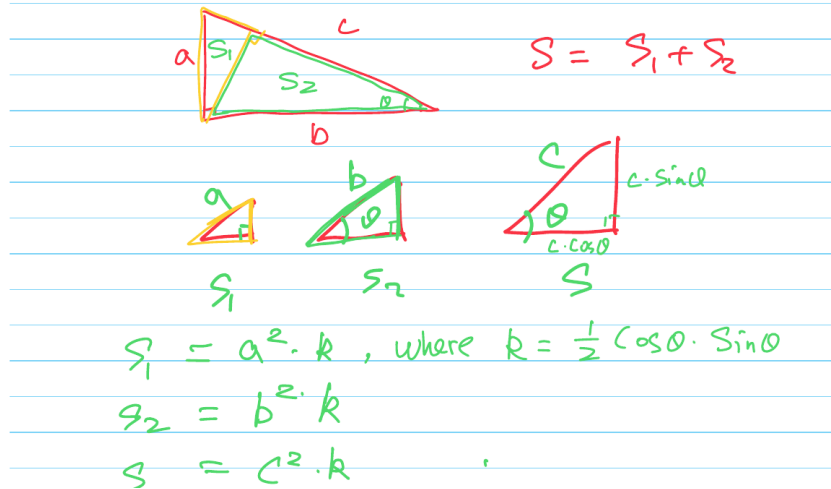 c
a S₁ S = S₁ + S₂
S₂
θ
b
a b C c·sinθ
θ θ
c·cosθ
S₁ S₂ S
S₁ = a²·k, where k = ½ Cosθ·Sinθ
S₂ = b²·k
S = C²·k